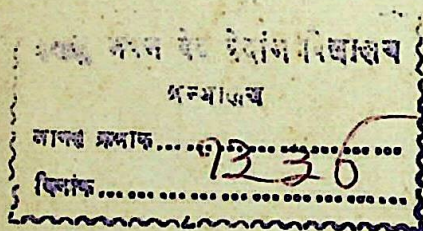 भवन वेद वेदांग विद्यालय
ग्रन्थालय
आगत क्रमांक......१२३६......
दिनांक..............................